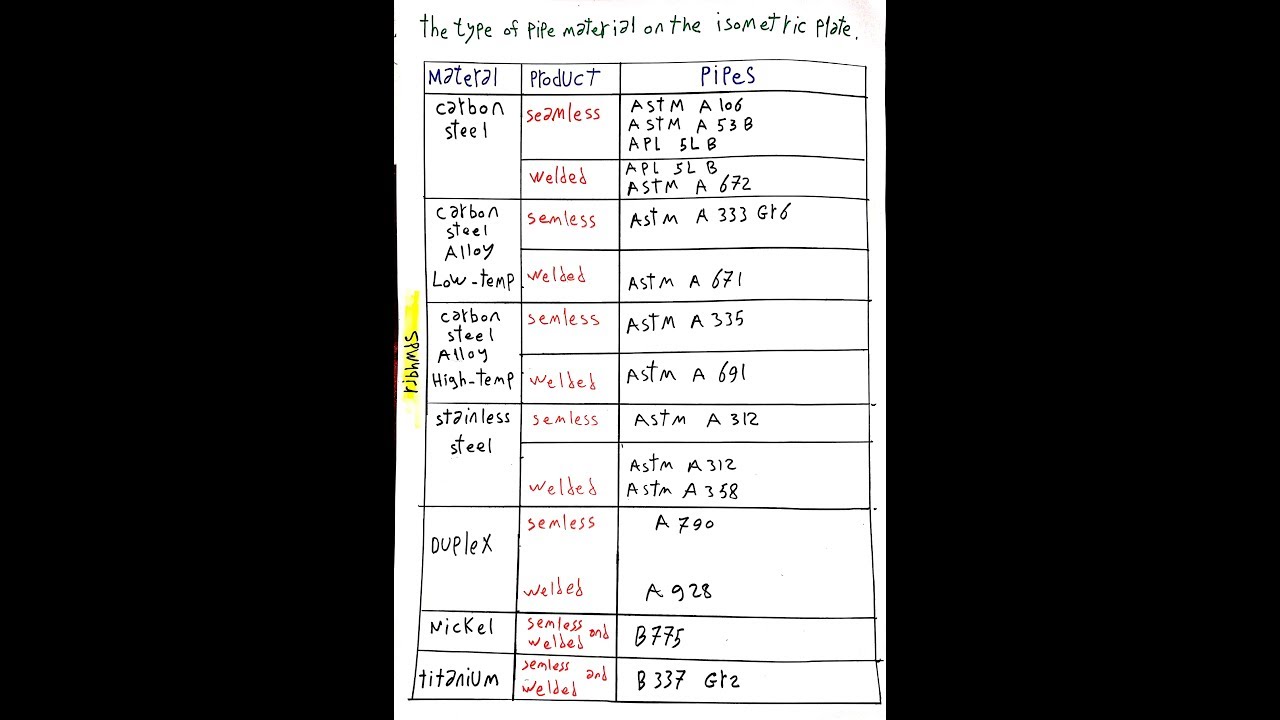 the type of pipe material on the isometric plate.
Materal Product Pipes
carbon steel seamless ASTM A 106
ASTM A 53 B
APL 5L B
welded APL 5L B
ASTM A 672
carbon steel Alloy Low-temp semless ASTM A 333 Gr6
welded ASTM A 671
carbon steel Alloy High-temp semless ASTM A 335
welded ASTM A 691
stainless steel semless ASTM A 312
welded ASTM A 312
ASTM A 358
Duplex semless A 790
welded A 928
Nickel semless and welded B775
titanium semless and welded B 337 Gr2